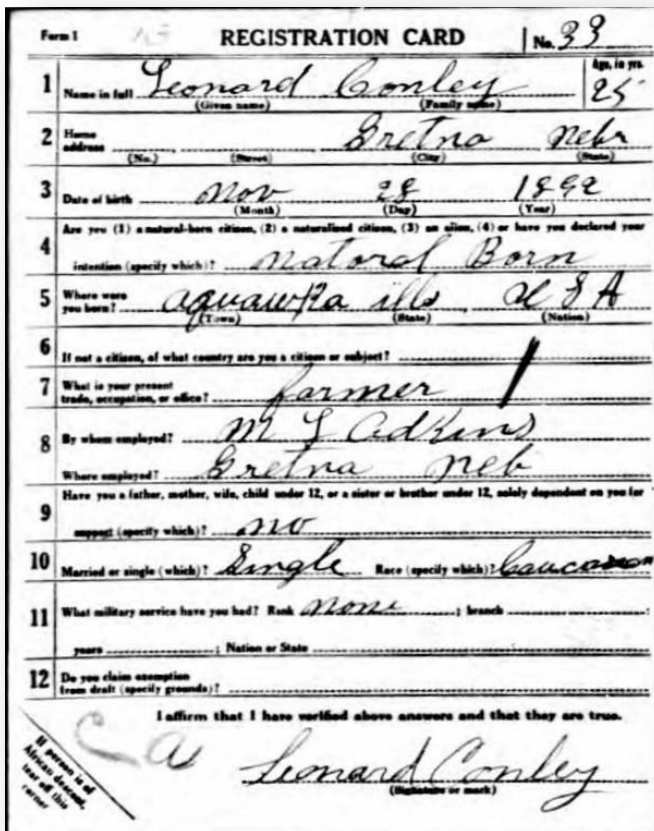 Form 1 REGISTRATION CARD No. 33
1 Name in full Leonard Conley Age, in yrs. 25
(Given name) (Family name)
2 Home address Gretna Nebr
(No.) (Street) (City) (State)
3 Date of birth Nov 28 1892
(Month) (Day) (Year)
4 Are you (1) a natural-born citizen, (2) a naturalized citizen, (3) an alien, (4) or have you declared your
intention (specify which)? Natoral Born
5 Where were you born? aquawka ills U S A
(Town) (State) (Nation)
6 If not a citizen, of what country are you a citizen or subject?
7 What is your present trade, occupation, or office? farmer
8 By whom employed? M L Adkins
Where employed? Gretna Neb
9 Have you a father, mother, wife, child under 12, or a sister or brother under 12, solely dependent on you for
support (specify which)? no
10 Married or single (which)? Single Race (specify which)? Caucasian
11 What military service have you had? Rank None ; branch ;
years ; Nation or State
12 Do you claim exemption from draft (specify grounds)?
I affirm that I have verified above answers and that they are true.
If person is of
African descent,
tear off this
corner
Leonard Conley
(Signature or mark)